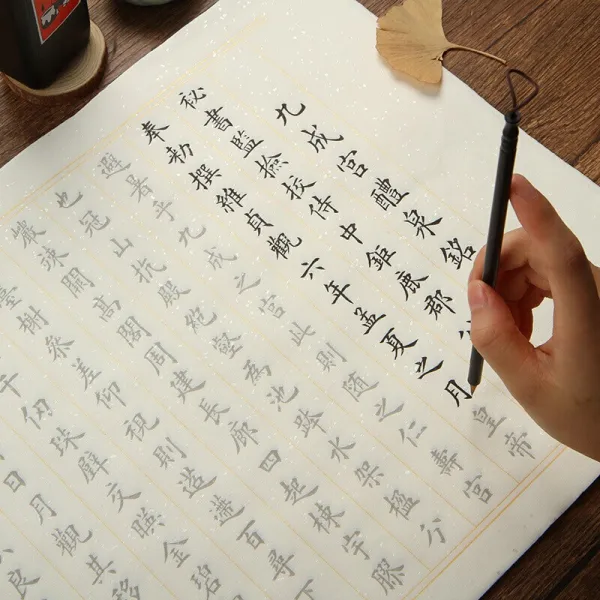 九成宮醴泉銘
秘書監撿挍侍中鉅鹿郡公
奉勑撰維貞觀六年孟夏之月皇帝
避暑乎九成之宮此則隨之仁壽宮
也冠山抗殿絕壑為池跨水架楹分
巖竦闕高閣周建長廊四起棟宇膠
臺榭叅差仰視則迢遰百尋下
千仞珠璧交暎金碧
日月觀其移
良